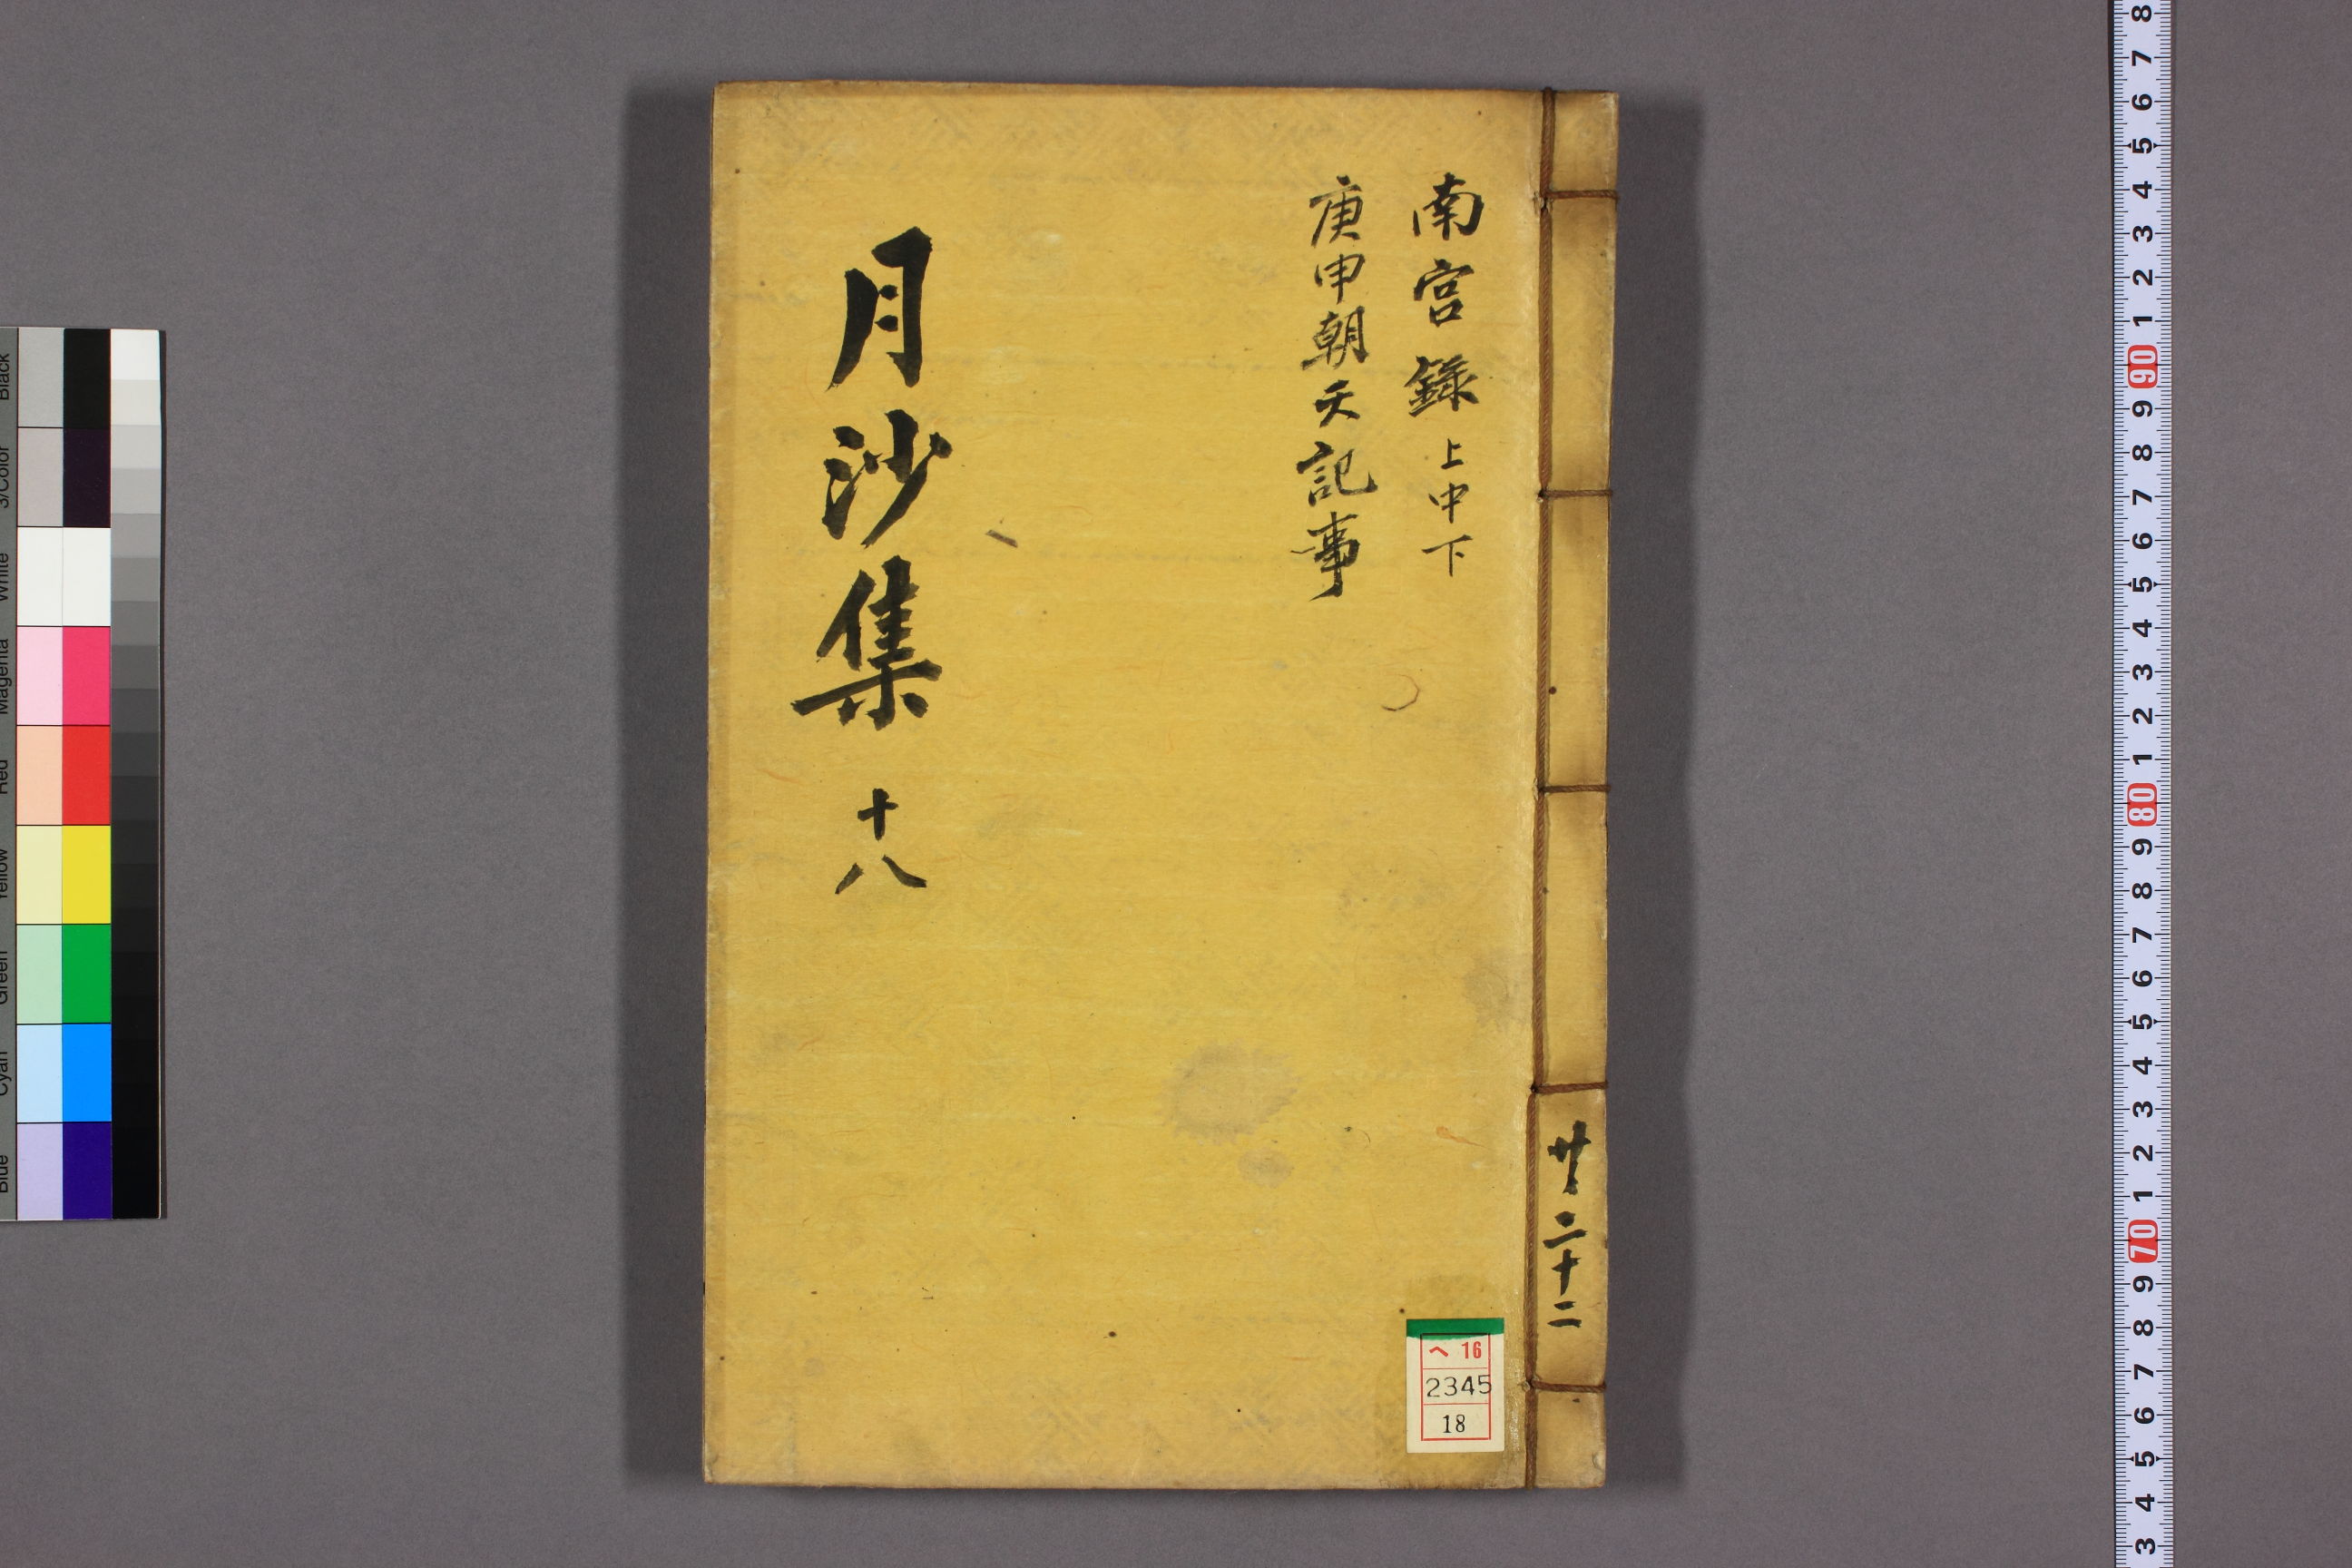 南宮錄 上中下
庚申朝天記事
月沙集 十八
共二十二
ヘ 16
2345
18
Black
3/Color
White
Magenta
Red
Yellow
Green
Cyan
Blue
8 7 6 5 4 3 2 1 90 9 8 7 6 5 4 3 2 1 80 9 8 7 6 5 4 3 2 1 70 9 8 7 6 5 4 3